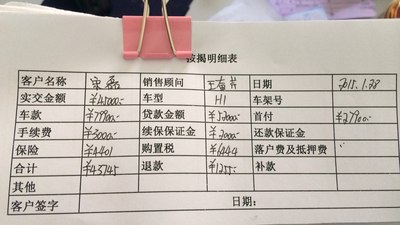 按揭明细表
客户名称 宋磊 销售顾问 日期 2015.1.28
实交金额 ¥45000- 车型 H1 车架号
车款 ¥79900- 贷款金额 ¥52000- 首付 ¥27900-
手续费 ¥3000- 续保保证金 ¥2000- 还款保证金
保险 ¥4401 购置税 ¥6444 落户费及抵押费
合计 ¥43745 退款 ¥1255- 补款
其他
客户签字 日期: